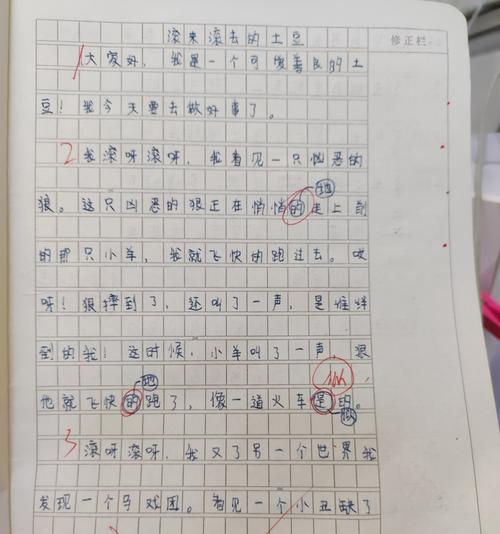 滚来滚去的土豆
修正栏
1大家好，我是一个可爱善良的土
豆！我今天要去做好事了。
2我滚呀滚呀，我看见一只凶恶的
地
狼。这只凶恶的狠正在悄悄的走上前
的那只小羊，我就飞快的跑过去。哎
呀！狠摔到了，还叫了一声，是谁绊
到的我！这时候，小羊叫了一声，狠
地
他就飞快的跑了，像一道火车是的。
似
3滚呀滚呀，我又了另一个世界我
发现一个马戏团。看见一个小丑缺了